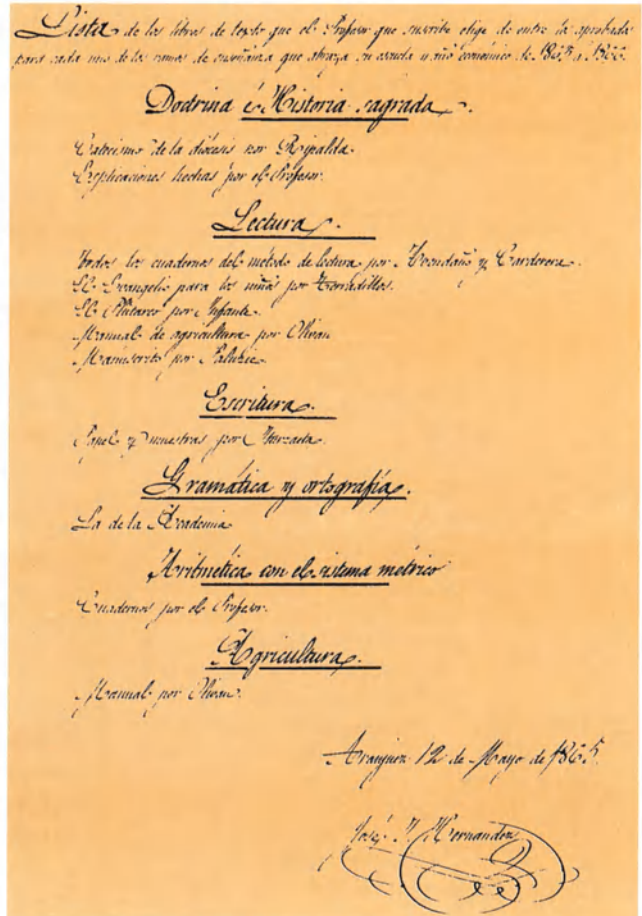 Lista de los libros de texto que el Profesor que suscribe elige de entre los aprobados
para cada uno de los ramos de enseñanza que abraza su escuela y año económico de 1865 a 1866.
Doctrina é Historia sagrada.
Catecismo de la diócesis por Ripalda.
Explicaciones hechas por el Profesor.
Lectura.
Todos los cuadernos del método de lectura por Avendaño y Carderera.
El Evangelio para los niños por Terradillos.
El Plutarco por Infante.
Manual de agricultura por Olivan
Manuscrito por Paluzie.
Escritura.
Papel y muestras por Iturzaeta.
Gramática y ortografía.
La de la Academia
Aritmética con el sistema métrico
Cuadernos por el Profesor.
Agricultura.
Manual por Olivan.
Aranjuez 12 de Mayo de 1865.
José J. Hernandez